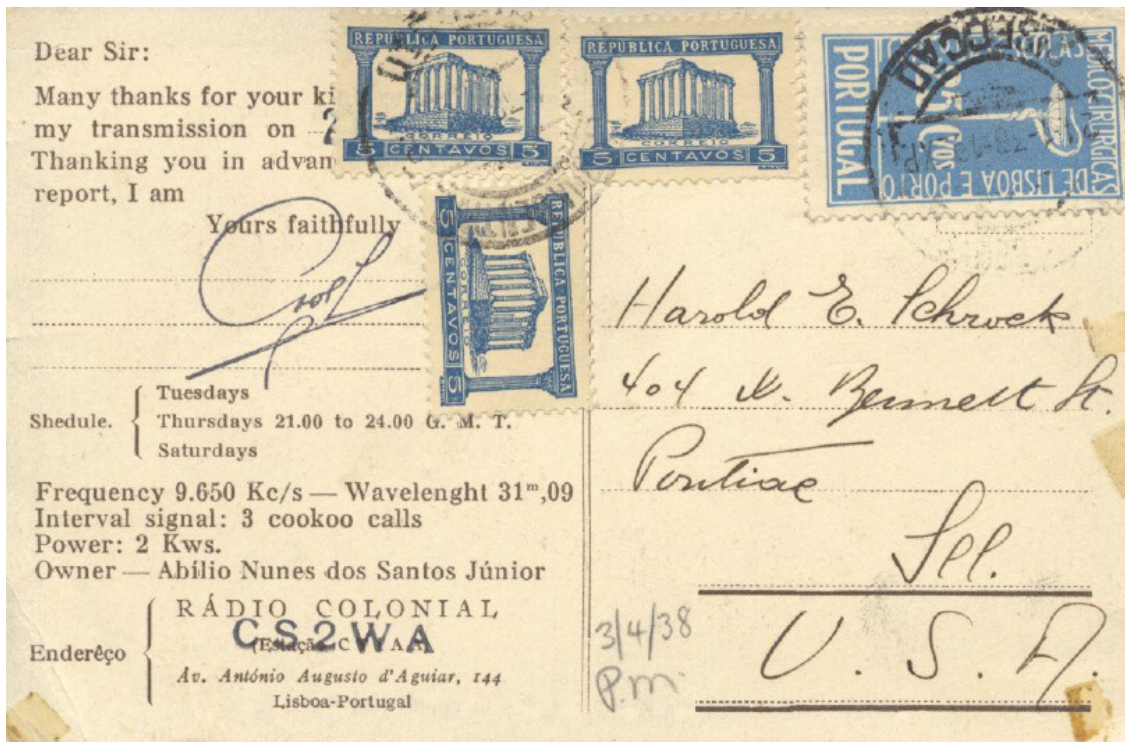 Dear Sir:
Many thanks for your ki
my transmission on
Thanking you in advan
report, I am
Yours faithfully
Shedule.
Tuesdays
Thursdays 21.00 to 24.00 G. M. T.
Saturdays
Frequency 9.650 Kc/s — Wavelenght 31ᵐ,09
Interval signal: 3 cookoo calls
Power: 2 Kws.
Owner — Abílio Nunes dos Santos Júnior
Enderêço
RÁDIO COLONIAL
CS2WA
(Estação C
Av. António Augusto d'Aguiar, 144
Lisboa-Portugal
REPUBLICA PORTUGUESA
CORREIO
5 CENTAVOS 5
REPUBLICA PORTUGUESA
CORREIO
5 CENTAVOS 5
REPUBLICA PORTUGUESA
CORREIO
5 CENTAVOS 5
PORTUGAL
DE LISBOA E PORTO
Harold E. Schrock
404 W. Bennett St.
Pontiac
Ill.
U. S. A.
3/4/38
P.M.